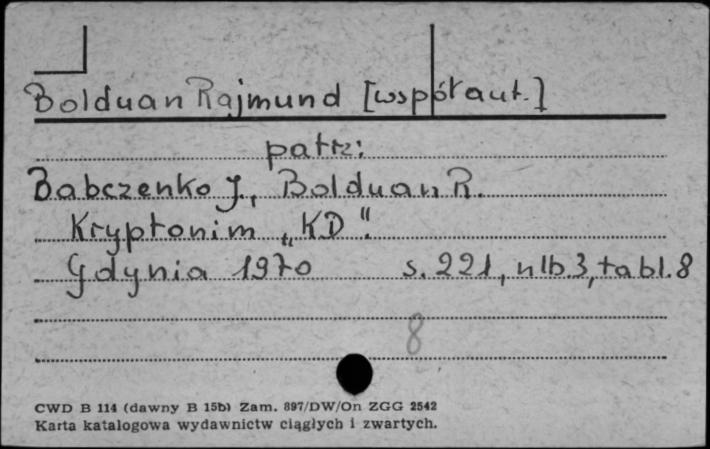 Bolduan Rajmund [współaut.]
patrz:
Babczenko J., Bolduan R.
Kryptonim „KD”.
Gdynia 1970 s. 221, nlb. 3, tabl. 8
8
CWD B 114 (dawny B 15b) Zam. 897/DW/On ZGG 2542
Karta katalogowa wydawnictw ciągłych i zwartych.